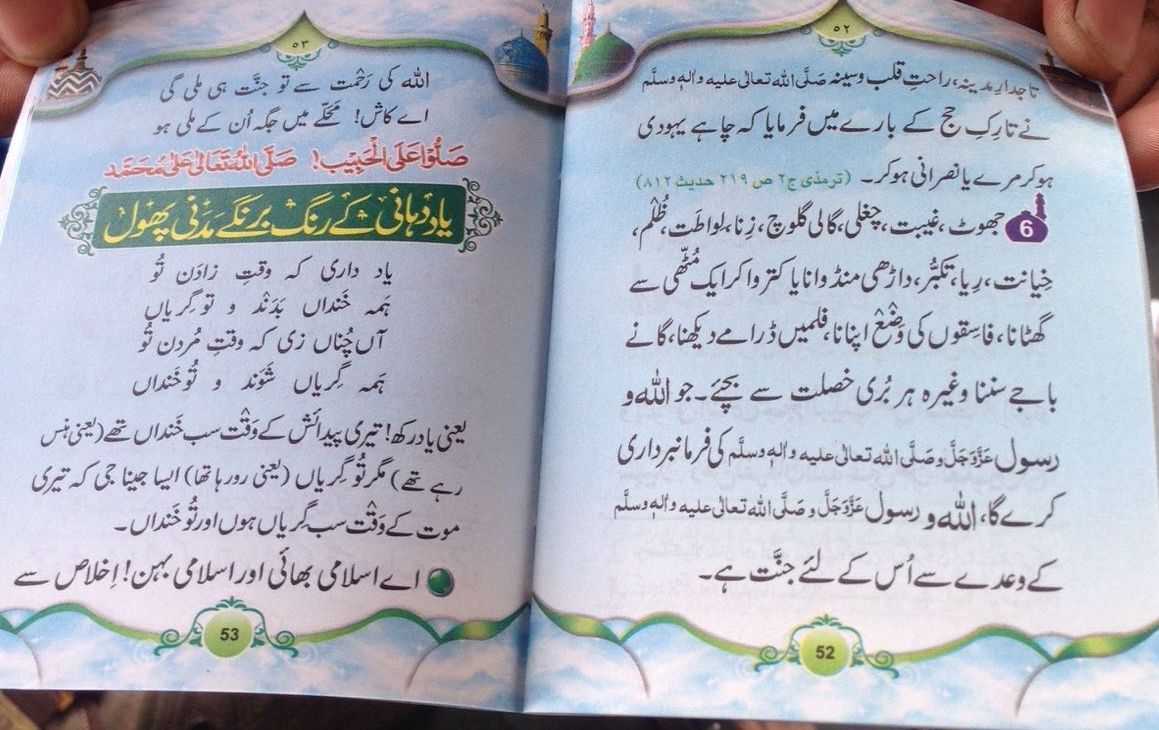 ۵۲
تاجدارِ مدینہ، راحتِ قلب وسینہ صَلَّی اللہ تعالیٰ علیہ واٰلہٖ وسلَّم
نے تارِکِ حج کے بارے میں فرمایا کہ چاہے یہودی
ہوکر مرے یا نصرانی ہوکر۔ (ترمذی ج۲ ص ۲۱۹ حدیث ۸۱۲)
6 جھوٹ، غیبت، چغلی، گالی گلوچ، زِنا، لواطَت، ظُلْم،
خِیانت، رِیا، تکبُّر، داڑھی منڈوانا یا کتروا کر ایک مُٹّھی سے
گھٹانا، فاسِقوں کی وَضْع اپنانا، فلمیں ڈرامے دیکھنا، گانے
باجے سننا وغیرہ ہر بُری خصلت سے بچئے۔ جو اللہ و
رسول عَزَّوَجَلَّ و صَلَّی اللہ تعالیٰ علیہ واٰلہٖ وسلَّم کی فرمانبرداری
کرے گا، اللہ و رسول عَزَّوَجَلَّ و صَلَّی اللہ تعالیٰ علیہ واٰلہٖ وسلَّم
کے وعدے سے اُس کے لئے جنَّت ہے۔
52
۵۳
اللہ کی رَحْمت سے تو جنَّت ہی ملی گی
اے کاش! مَحَلّے میں جگہ اُن کے ملی ہو
صَلُّوْا عَلَی الْحَبِیْب! صَلَّی اللہُ تَعَالیٰ عَلیٰ مُحَمَّد
یاد دہانی کے رنگ برنگے مَدَنی پھول
یاد داری کہ وقتِ زادَن تُو
ہَمہ خَنداں بَدَنْد و تو گِریاں
آں چُناں زی کہ وقتِ مُردن تُو
ہَمہ گِریاں شَوَند و تُو خَنداں
یعنی یاد رکھ! تیری پیدائش کے وَقْت سب خَنداں تھے (یعنی ہنس
رہے تھے) مگر تُو گِریاں (یعنی رو رہا تھا) ایسا جینا جی کہ تیری
موت کے وَقْت سب گِریاں ہوں اور تُو خنداں۔
اے اسلامی بھائی اور اسلامی بہن! اِخلاص سے
53